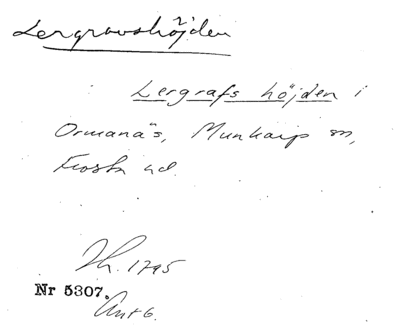 Lergravshöjden
Lergrafs höjden i
Ormanäs, Munkarp sn,
Frosta hd.
Th. 1795
Nr 5307.
Ant 6.